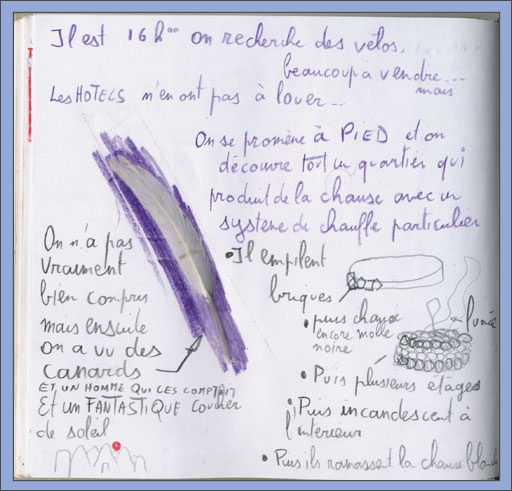 Il est 16h00 on recherche des vélos.
beaucoup a vendre... mais
Les HOTELS n'en ont pas à louer...
On se promène à PIED et on
découvre tout un quartier qui
produit de la chause avec un
système de chauffe particulier
• Il empilent
briques
• puis chause
encore molle
noire
fumée
• Puis plusieurs étages
• Puis incandescent à
l'intérieur
• Puis ils ramassent la chause blanche
On n'a pas
vraiment
bien compris
mais ensuite
on a vu des
canards
ET UN HOMME QUI LES COMPTAIT
Et un FANTASTIQUE coucher
de soleil